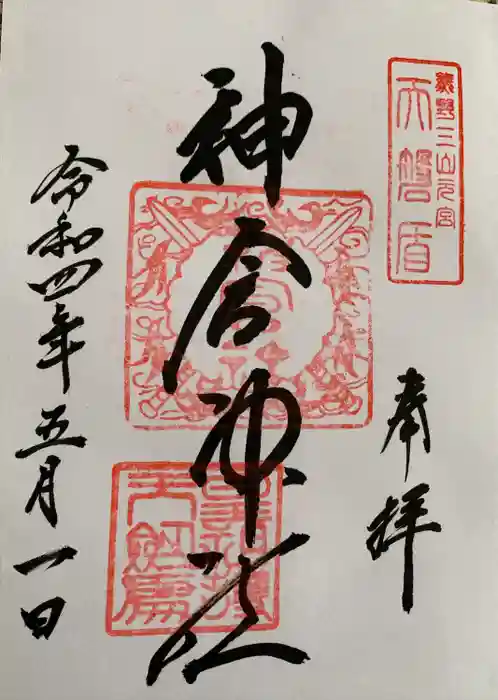 熊野三山元宮
天磐盾
奉拝
神倉神社
令和四年五月一日